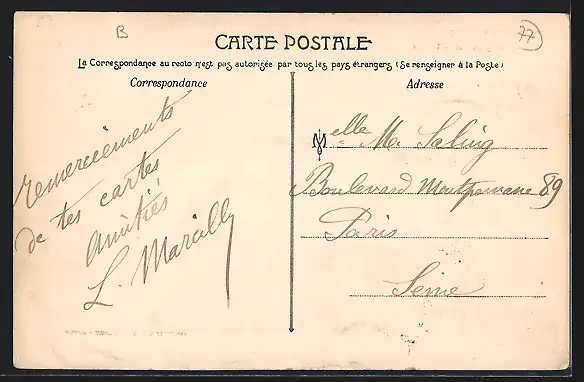 B
77
CARTE POSTALE
La Correspondance au recto n'est pas autorisée par tous les pays étrangers (Se renseigner à la Poste)
Correspondance
Adresse
remerciements
de tes cartes
Amitiés
L. Marailly
Melle M. Saling
Boulevard Montparnasse 89
Paris
Seine